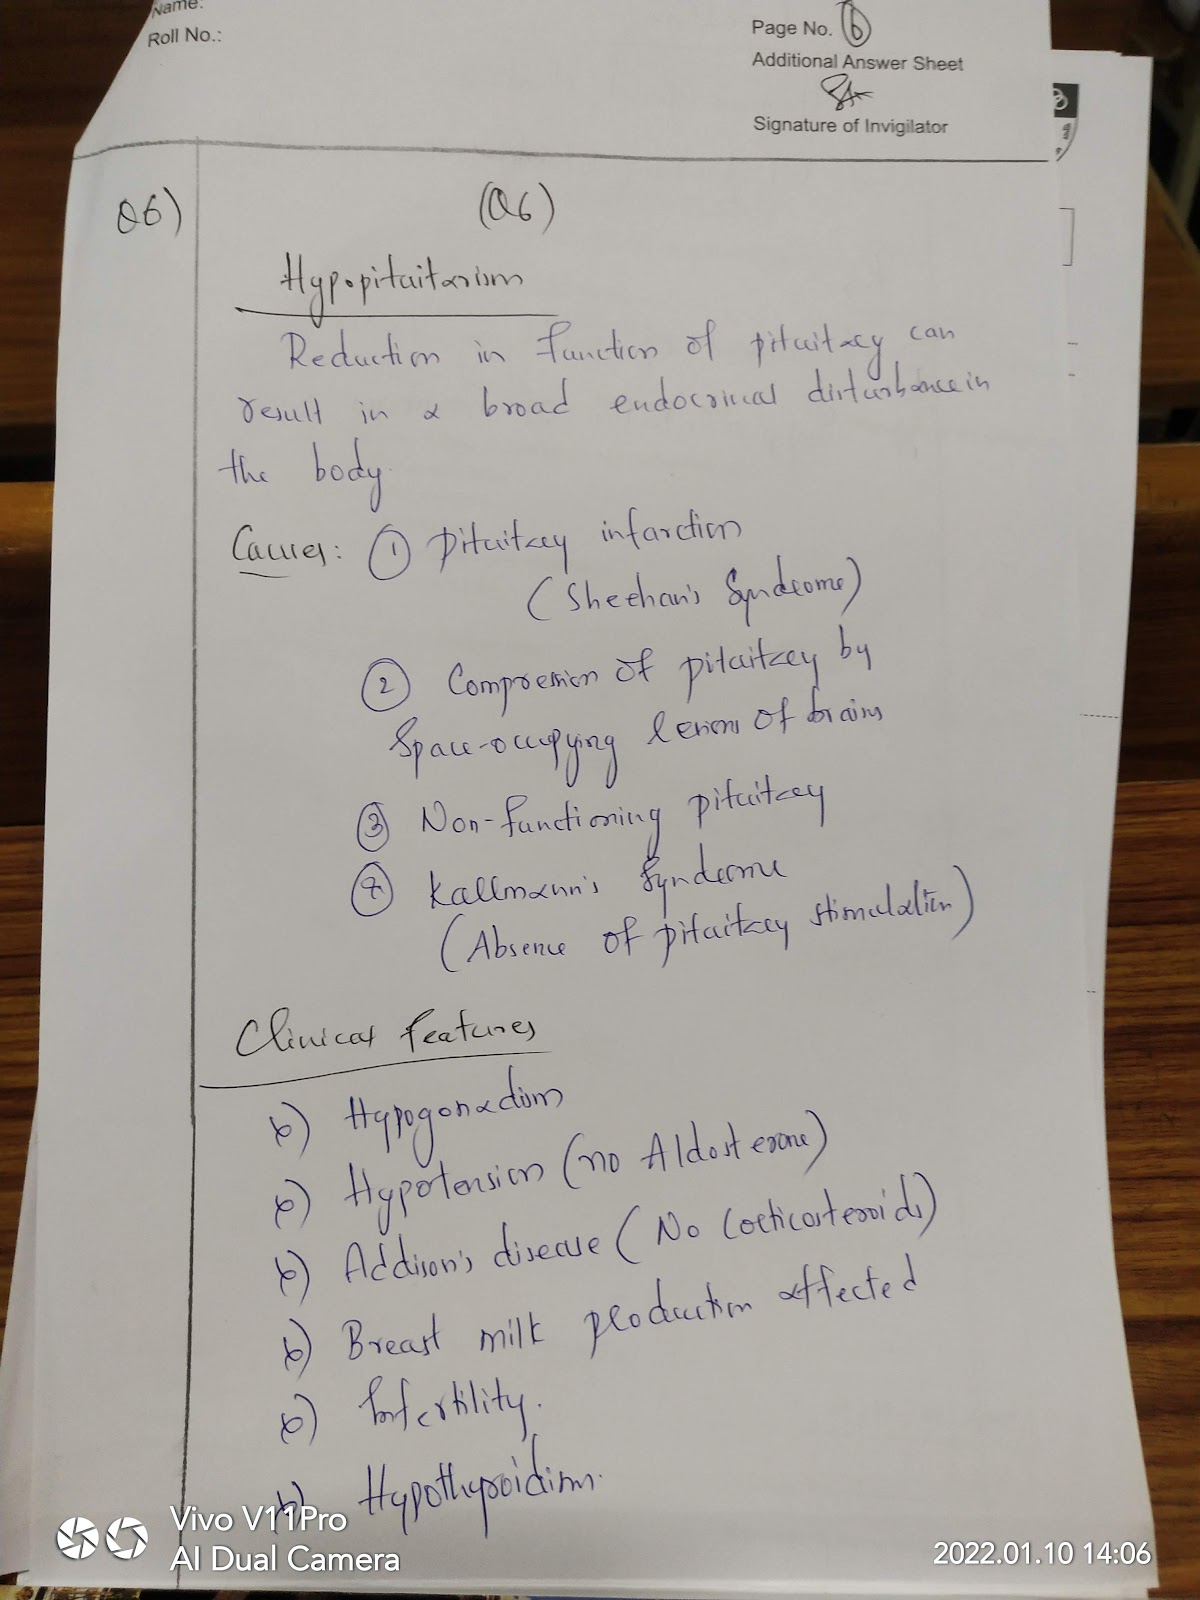 Name:
Roll No.:
Page No. 6
Additional Answer Sheet
Signature of Invigilator
Q6)
(Q6)
Hypopituitarism
Reduction in function of pituitary can
result in a broad endocrinal disturbance in
the body.
Causes: ① Pituitary infarction
(Sheehan's Syndrome)
② Compression of pituitary by
Space-occupying lesions of brain
③ Non-functioning pituitary
④ Kallmann's Syndrome
(Absence of pituitary stimulation)
Clinical features
Hypogonadism
Hypotension (no Aldosterone)
Addison's disease (No Corticosteroids)
Breast milk production affected
Infertility.
Hypothyroidism.
Vivo V11Pro
AI Dual Camera
2022.01.10 14:06